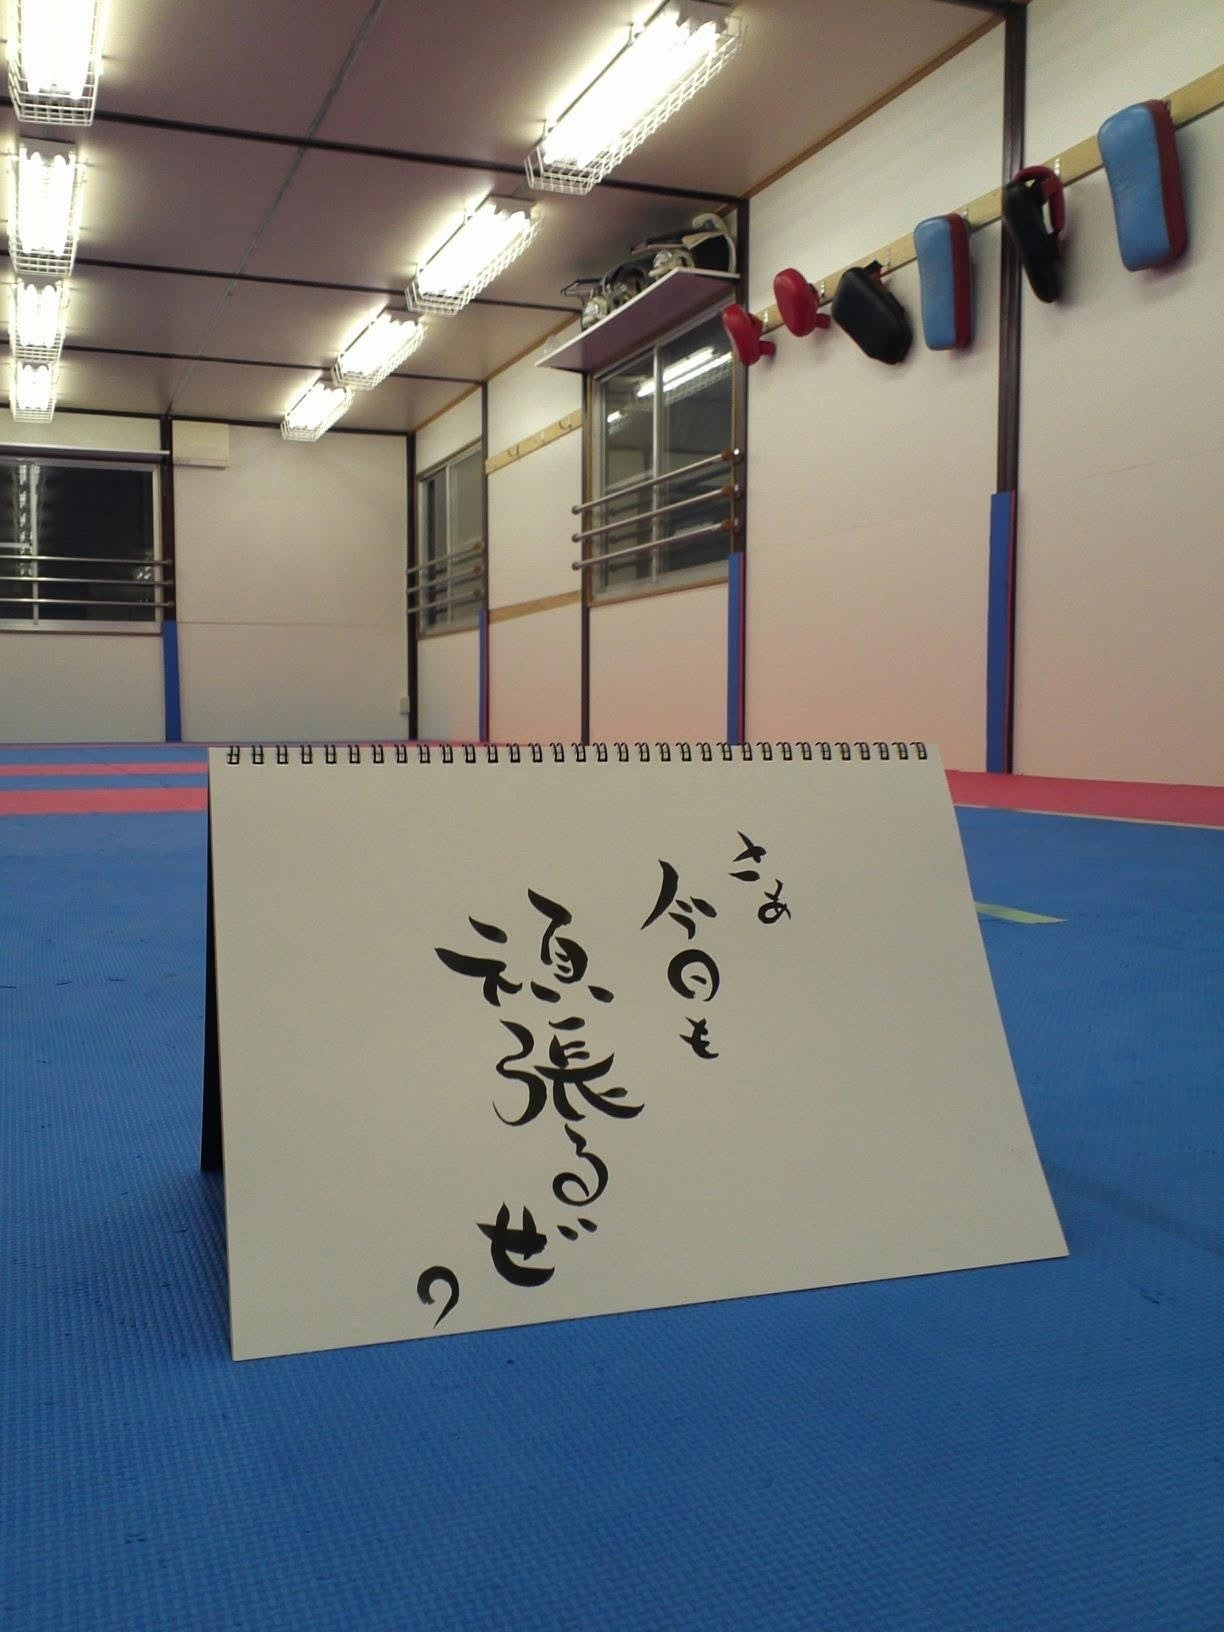 さぁ
今日も
頑張るぜ